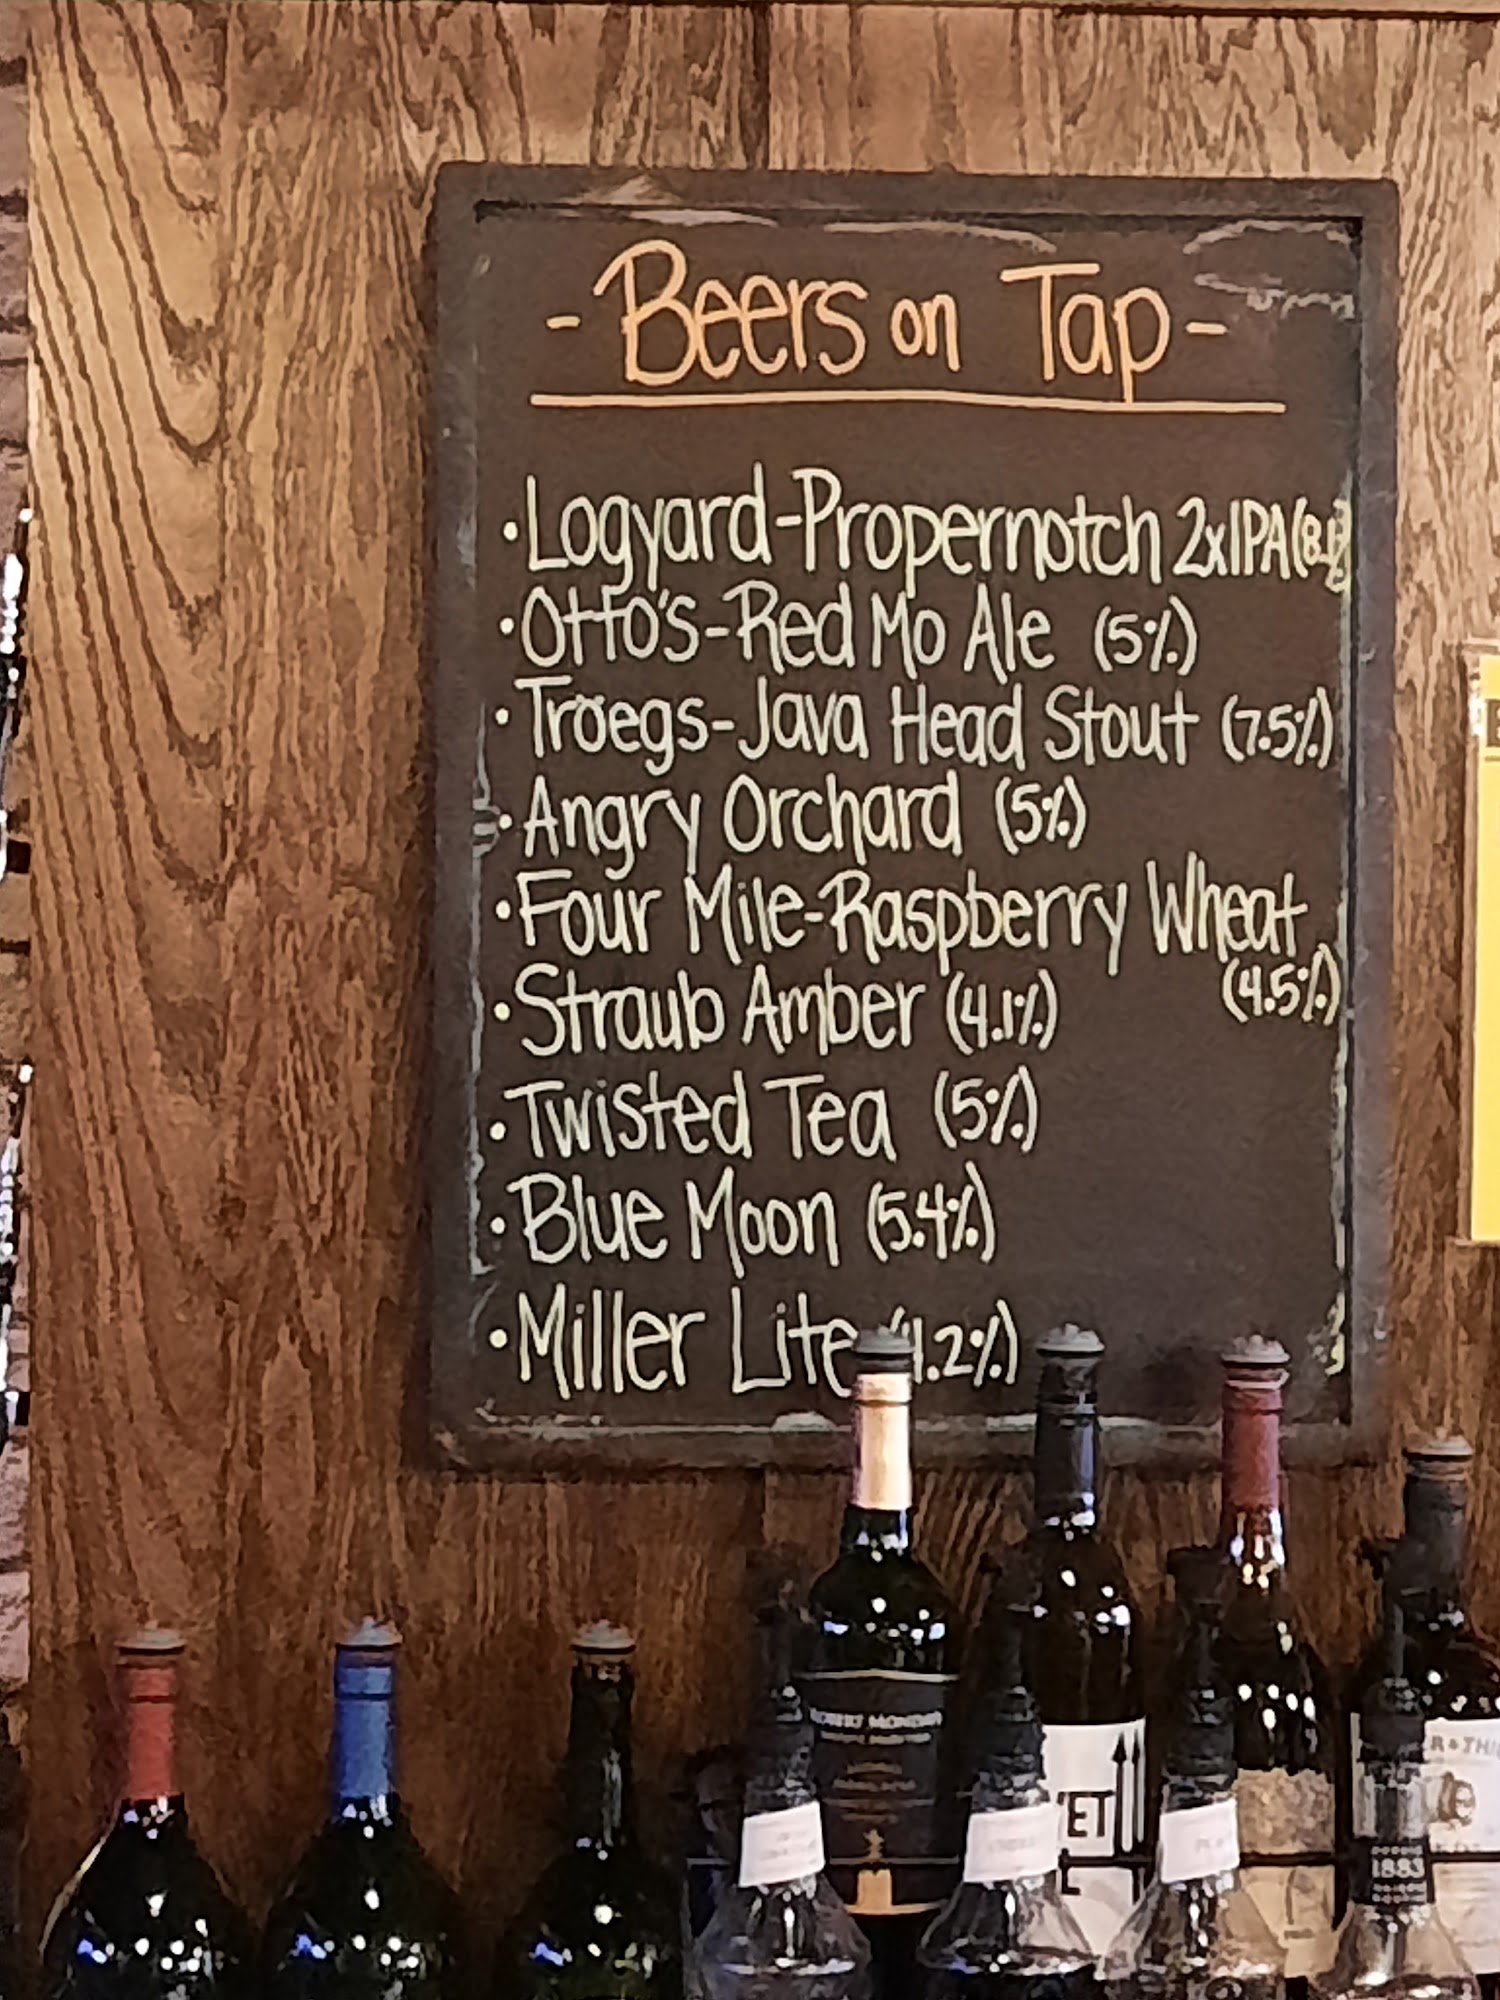 - Beers on Tap -
• Logyard-Propernotch 2xIPA
• Otto's-Red Mo Ale (5%)
• Tröegs-Java Head Stout (7.5%)
• Angry Orchard (5%)
• Four Mile-Raspberry Wheat
(4.5%)
• Straub Amber (4.1%)
• Twisted Tea (5%)
• Blue Moon (5.4%)
• Miller Lite
1883